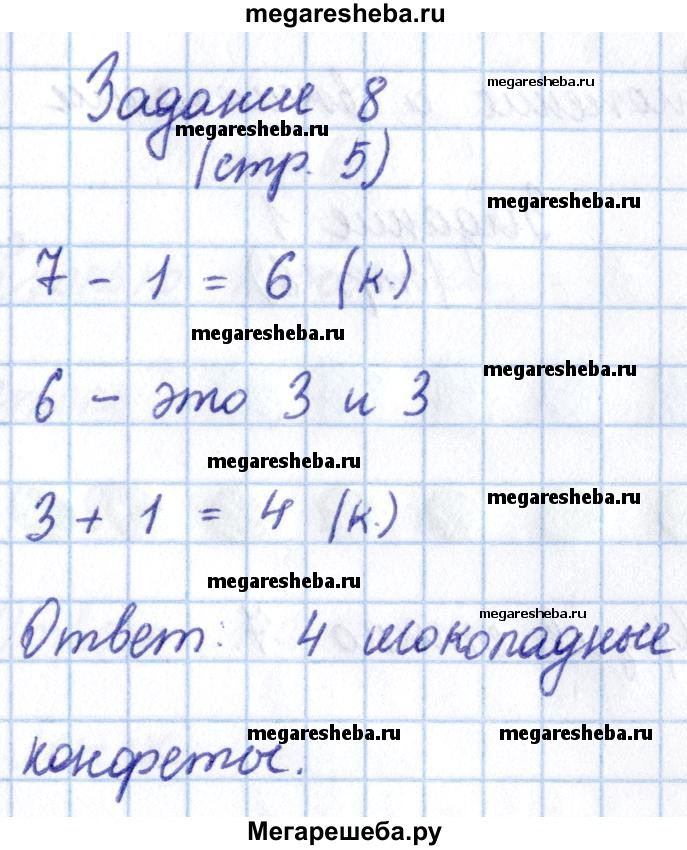 megaresheba.ru
Задание 8
megaresheba.ru
megaresheba.ru
(стр. 5)
megaresheba.ru
7 - 1 = 6 (к.)
megaresheba.ru
megaresheba.ru
6 - это 3 и 3
megaresheba.ru
megaresheba.ru
3 + 1 = 4 (к.)
megaresheba.ru
megaresheba.ru
Ответ: 4 шоколадные
megaresheba.ru
megaresheba.ru
конфеты.
Мегарешеба.ру